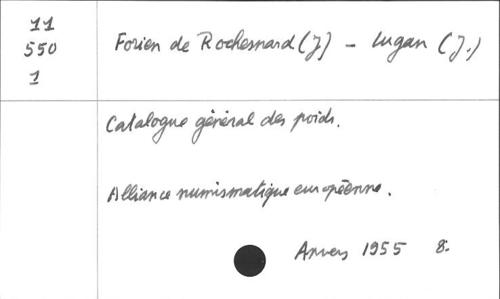 11
550
1
Forien de Rochesnard (J) - Lugan (J.)
Catalogue général des poids.
Alliance numismatique européenne.
Anvers 1955 8: